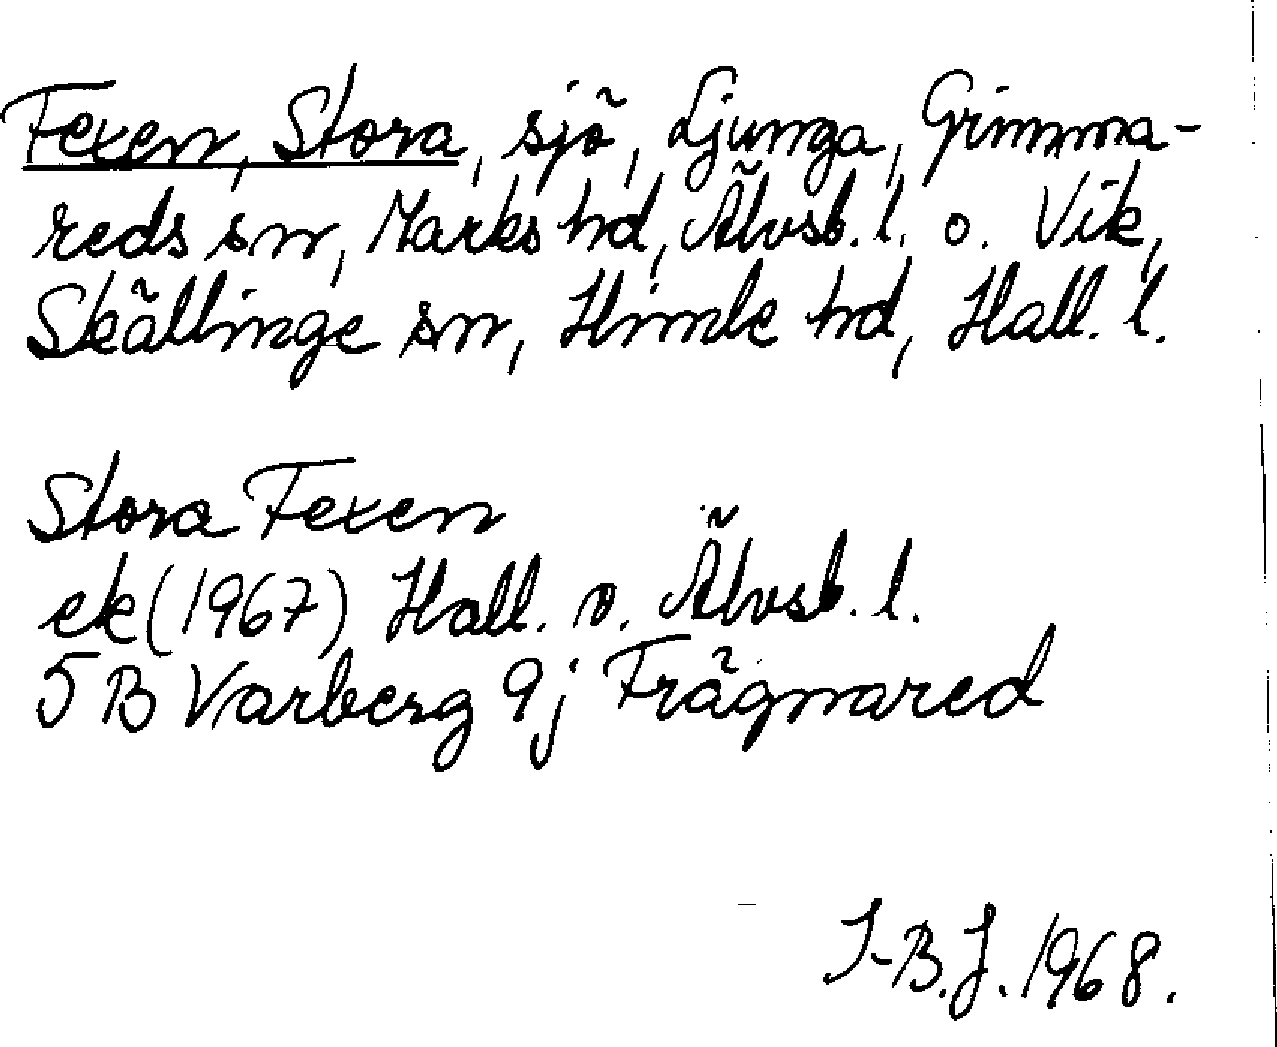 Fexen, Stora, sjö, Ljunga, Grimma-
reds sn, Marks hd, Älvsb. l. o. Vik,
Skällinge sn, Himle hd, Hall. l.
Stora Fexen
ek (1967) Hall. o. Älvsb. l.
5 B Varberg 9j Frägnared
I-B.J. 1968.